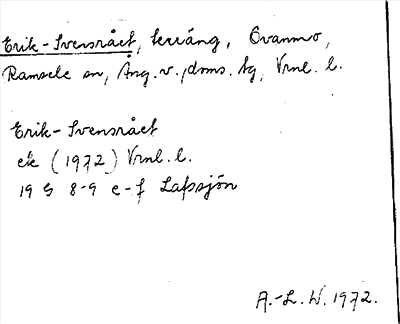 Erik-Svensrået, terräng, Ovanmo,
Ramsele sn, Ång. v., doms. tg, Vrnl. l.
Erik-Svensrået
ek (1972) Vrnl. l.
19 G 8-9 e-f Lafssjön
A.-L. W. 1972.